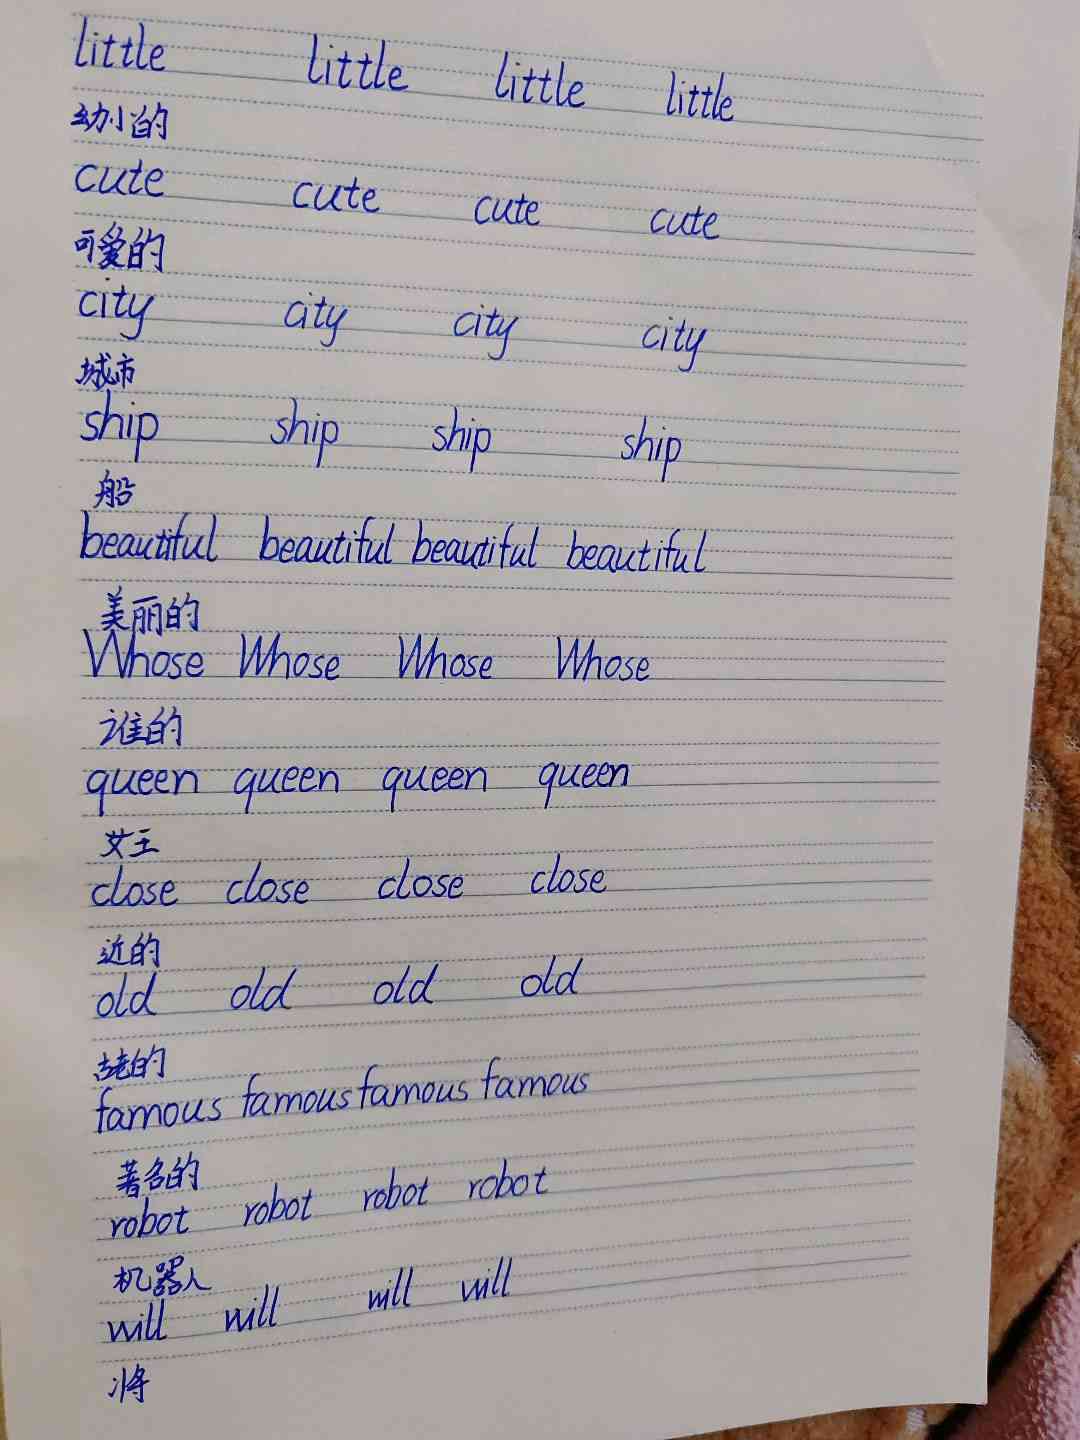 little little little little
幼小的
cute cute cute cute
可爱的
city city city city
城市
ship ship ship ship
船
beautiful beautiful beautiful beautiful
美丽的
Whose Whose Whose Whose
谁的
queen queen queen queen
女王
close close close close
近的
old old old old
古老的
famous famous famous famous
著名的
robot robot robot robot
机器人
will will will will
将